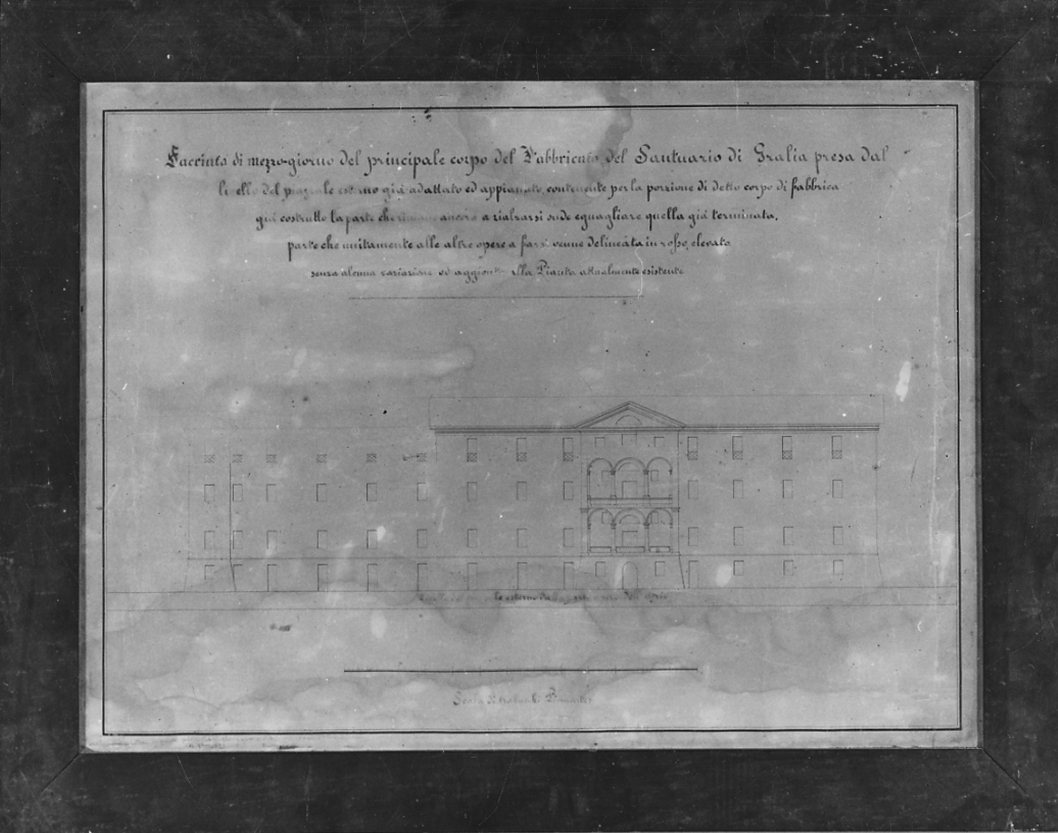 Facciata di mezzo-giorno del principale corpo del Fabbricato del Santuario di Gralia presa dal
livello del piazzale esterno già adattato ed appianato, contenente per la porzione di detto corpo di fabbrica
già costrutto la parte che rimane ancora a rialzarsi onde eguagliare quella già terminata,
parte che unitamente alle altre opere a farsi venne delineata in rosso, elevata
senza alcuna variazione ed aggionta alla Pianta attualmente esistente
esterno
Scala di trabucchi